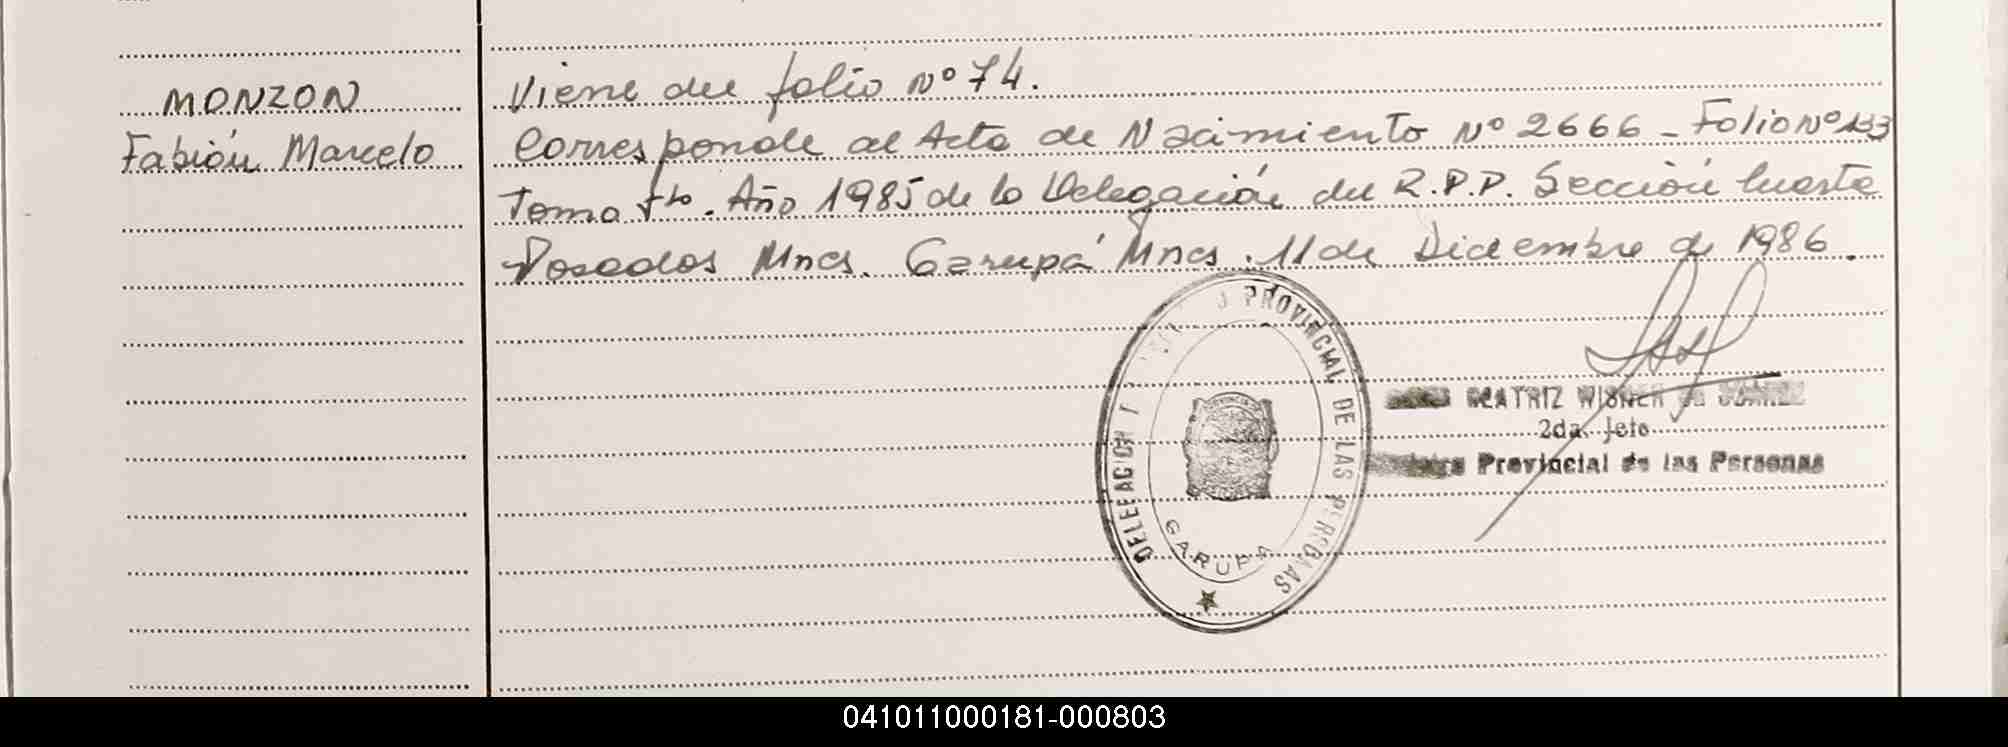 MONZON
Fabián Marcelo
Viene del folio Nº 74.
Corresponde al Acta de Nacimiento Nº 2666 - Folio Nº 133
Tomo 7to. Año 1985 de la Delegación del R.P.P. Sección Cuarta
Posadas Mncs. Garupá Mncs. 11 de Diciembre de 1986.
DELEGACION PROVINCIAL DE LAS PERSONAS
GARUPA
BEATRIZ WISNER de
2da. Jefe
Provincial de las Personas
041011000181-000803